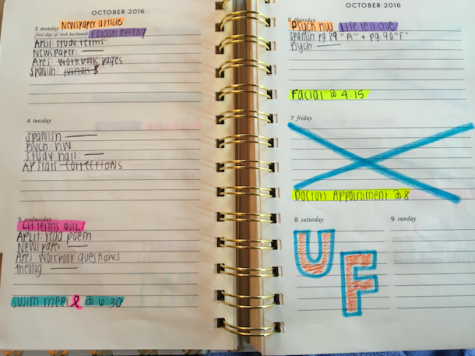 OCTOBER 2016
3 monday Newspaper article
first day of rosh hashanah Parent meeting
AP Lit: Study terms
Newspaper:
APES: Workbook pages
Spanish: journals 8
4 tuesday
Spanish
Psych HW
Study hall:
AP Stats - corrections
5 wednesday
Lit Terms Quiz
AP Lit: read poem
Newspaper
APES: Workbook questions
Theology
Swim meet @ 6:30
OCTOBER 2016
6 thursday
Psych HW
Spanish pg 19 "A" + pg 90 "F"
Psych
Facial @ 4:15
7 friday
Doctors Appointment @ 8
8 saturday
9 sunday
UF